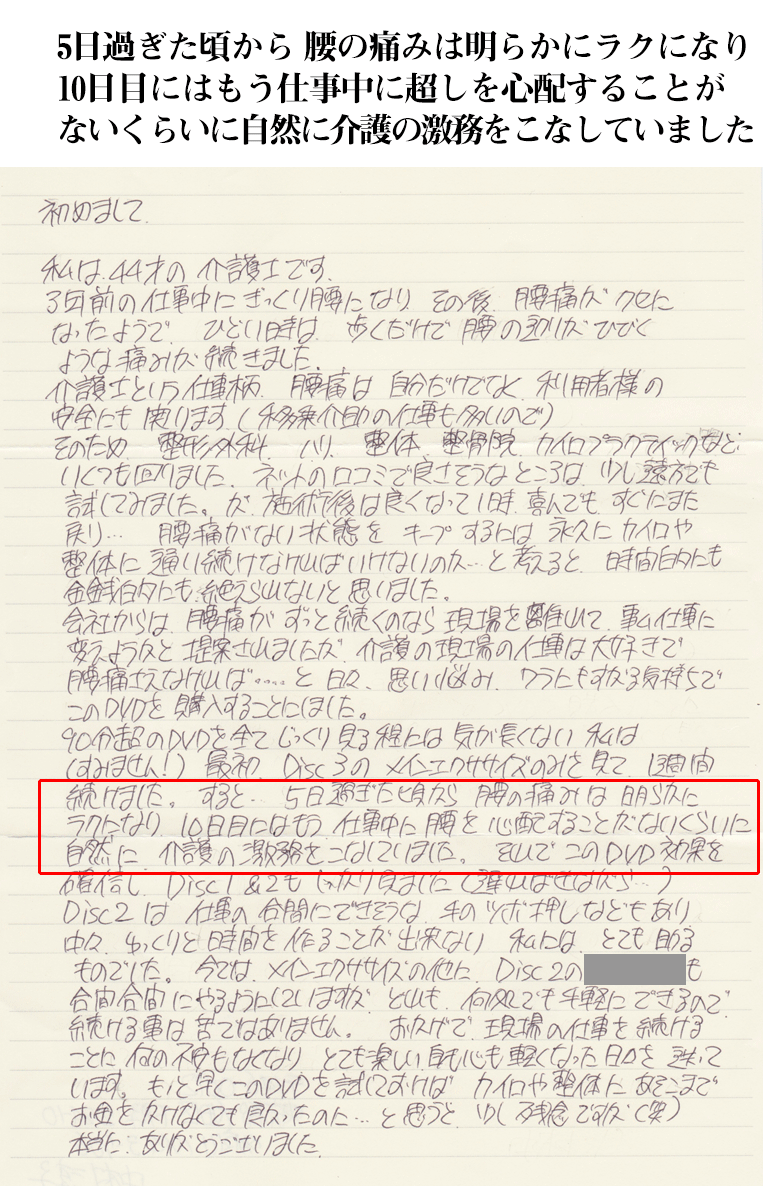 5日過ぎた頃から 腰の痛みは明らかにラクになり
10日目にはもう仕事中に超しを心配することが
ないくらいに自然に介護の激務をこなしていました
初めまして。
私は、44才の 介護士です。
3年前の仕事中に ぎっくり腰になり その後、腰痛が クセに
なったようで、 ひどい時は、歩くだけで 腰の辺りが ひびく
ような 痛みが 続きました。
介護士という仕事柄、腰痛は 自分だけでなく、利用者様の
安全にも 関ります。(移乗介助の仕事も多いので)
そのため、整形外科、ハリ、整体、整骨院、カイロプラクティックなど、
いくつも回りました。ネットの口コミで良さそうなところは、少し遠方でも
試してみました。が、施術後は良くなって1時、喜んでも、すぐにまた
戻り… 腰痛がない状態を キープするには 永久に カイロや
整体に 通い続けなければいけないのか…と考えると、時間的にも
金銭的にも、絶えられないと思いました。
会社からは、腰痛が ずっと続くのなら 現場を離れて、事ム仕事に
変えようかと 提案されましたが、介護の現場の仕事は大好きで
腰痛さえなければ‥‥と 日々、思い悩み、ワラにもすがる気持ちで
このDVDを 購入することにしました。
90分超のDVDを全て じっくり見る程には 気が長くない 私は
(すみません!) 最初、Disc3の メインエクササイズのみを見て、1週間
続けました。 すると… 5日過ぎた頃から 腰の痛みは 明らかに
ラクになり、10日目にはもう、仕事中に 腰を 心配することがないくらいに
自然に、介護の激務をこなしていました。 それで このDVD効果を
確信し、Disc1&2も しっかり見ました (遅ればせながら…)
Disc2は 仕事の合間にできそうな、手のツボ押しなどもあり
中々、ゆっくりと時間を作ることが出来ない 私には、とても助る
ものでした。 今では、メインエクササイズの他に、Disc2の も
合間合間にやるようにしていますが、とても、何処でも手軽にできるので、
続ける事は苦ではありません。 おかげで 現場の仕事を続ける
ことに 何の不安もなくなり とても楽しい身も心も軽くなった日々を 送って
います。もっと早くこのDVDを試しておけば カイロや整体に あそこまで
お金をかけなくても良かったのに…と思うと、少し残念ですが(笑)
本当に、ありがとうございました。